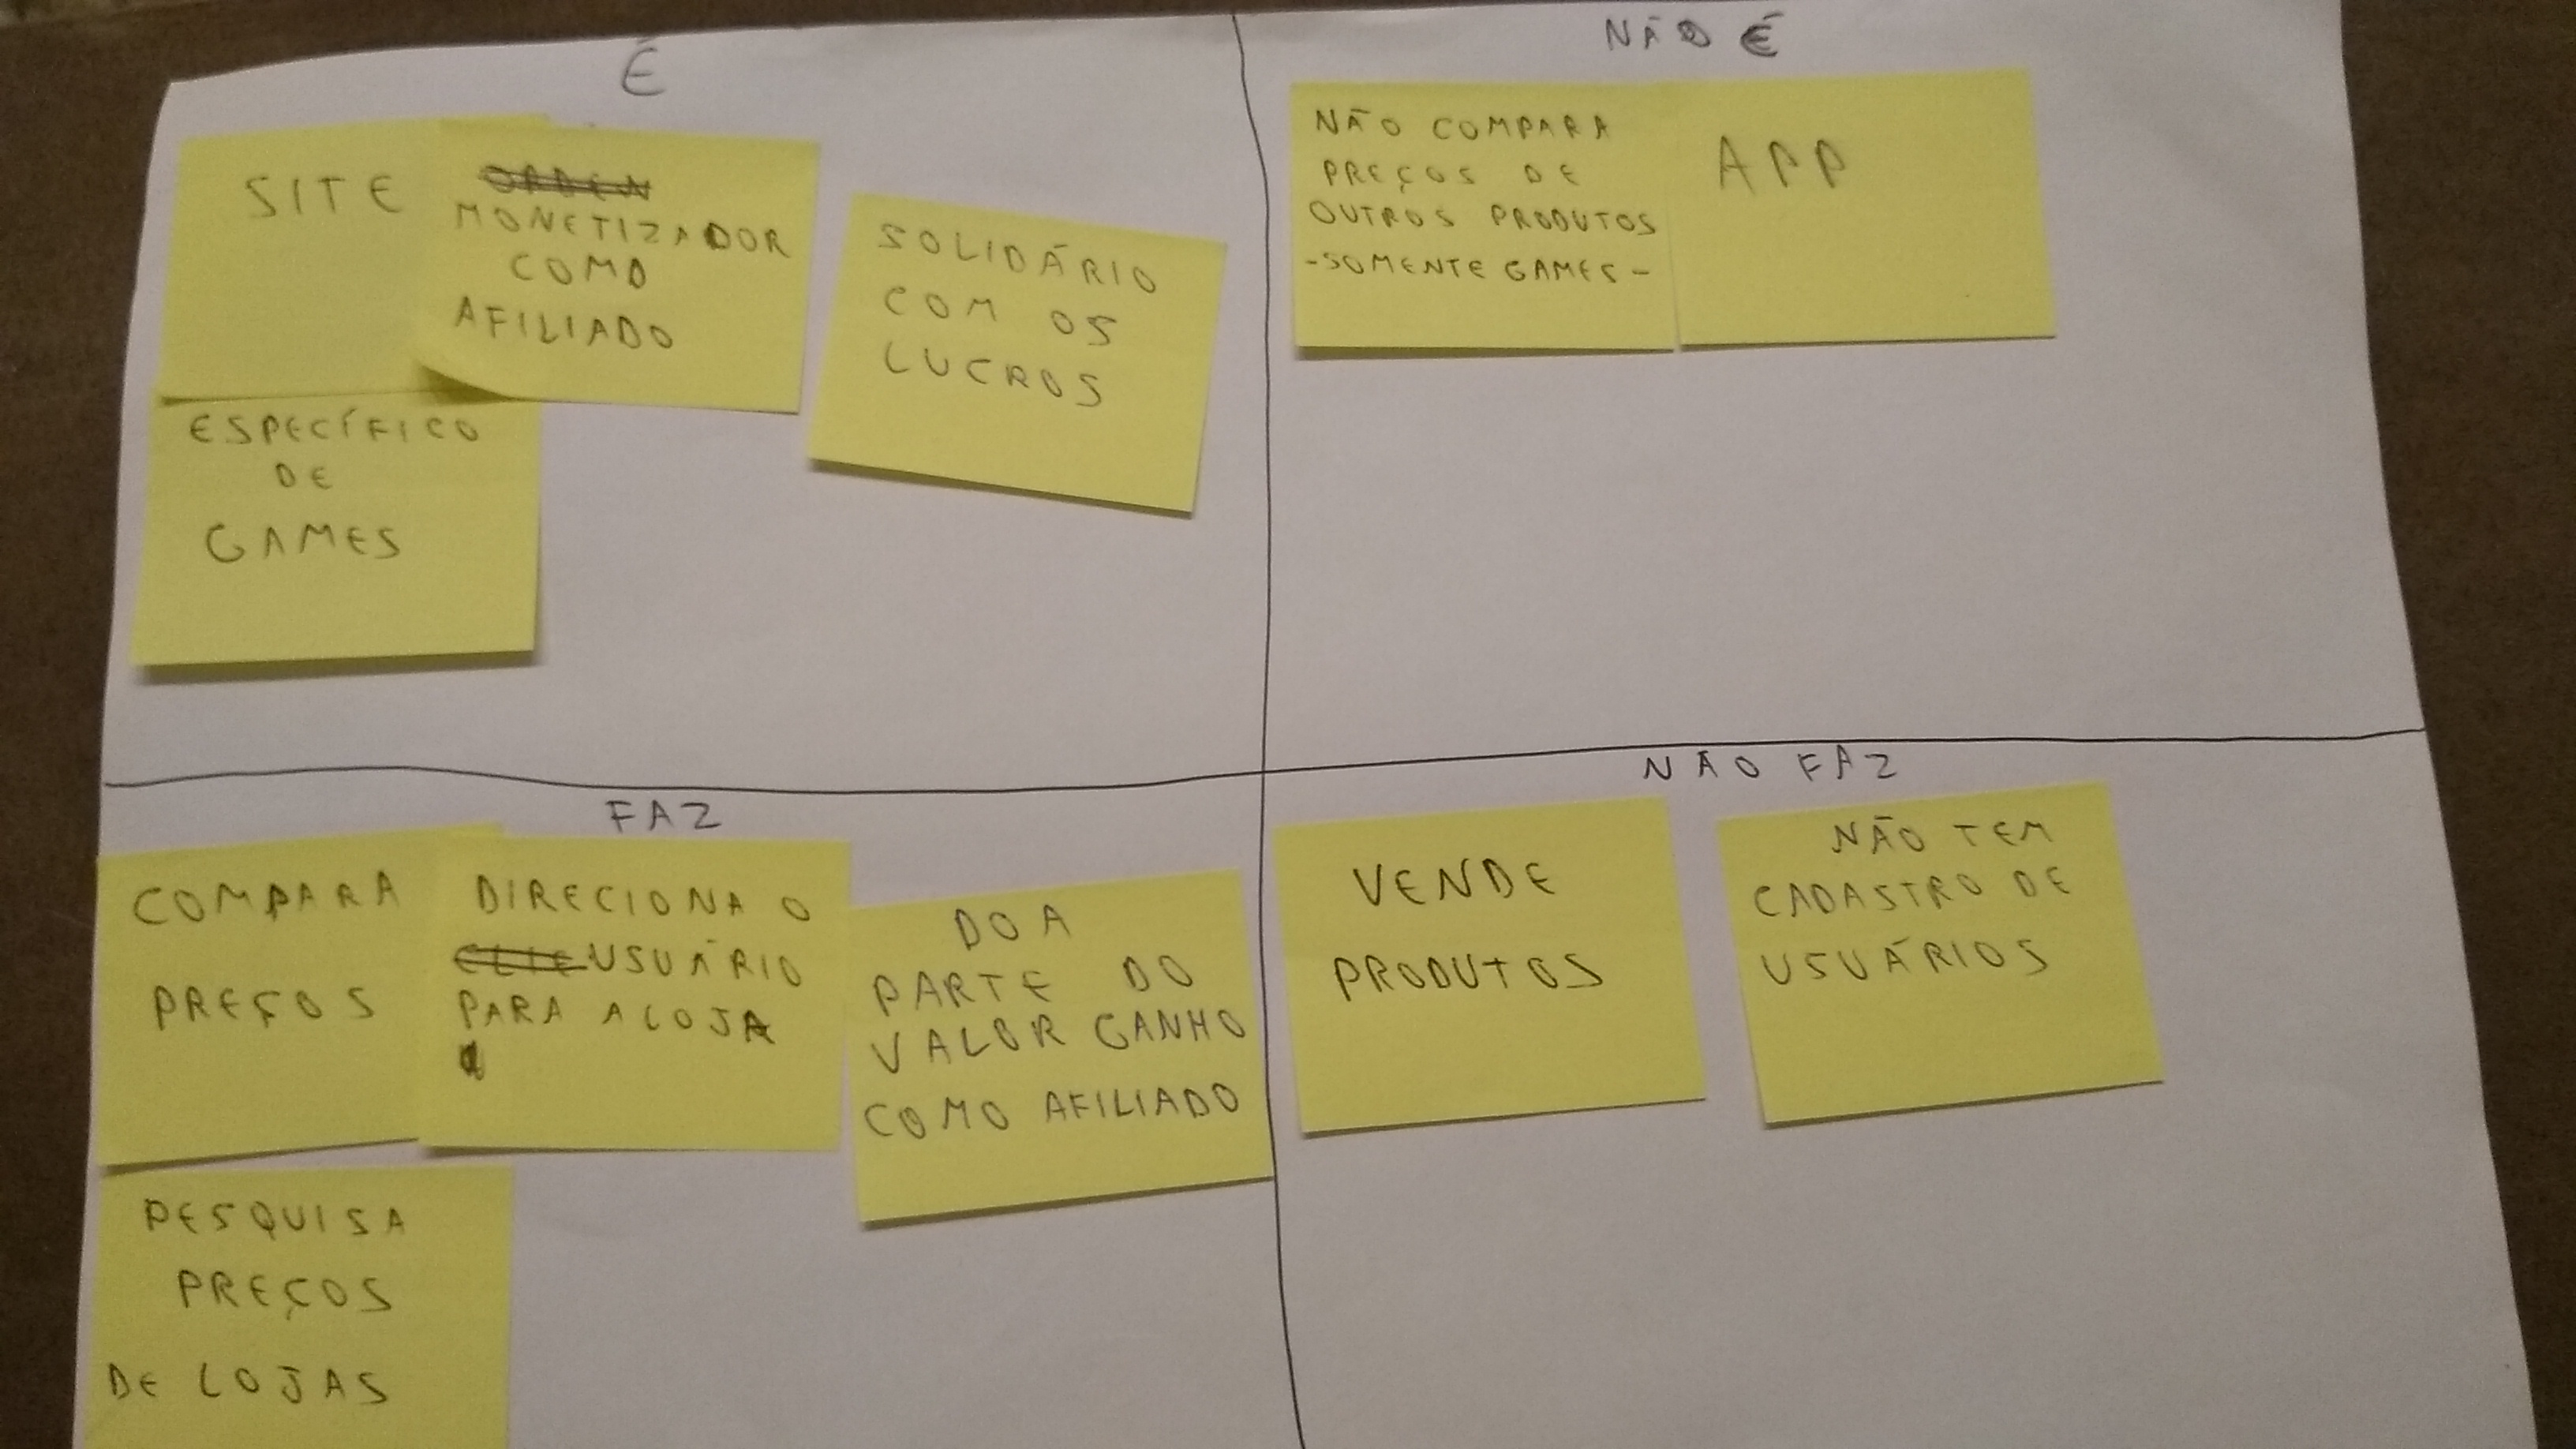 É
SITE
MONETIZADOR
COMO
AFILIADO
SOLIDÁRIO
COM OS
LUCROS
ESPECÍFICO
DE
GAMES
NÃO É
NÃO COMPARA
PREÇOS DE
OUTROS PRODUTOS
-SOMENTE GAMES-
APP
FAZ
COMPARA
PREÇOS
DIRECIONA O
USUÁRIO
PARA A LOJA
DOA
PARTE DO
VALOR GANHO
COMO AFILIADO
PESQUISA
PREÇOS
DE LOJAS
NÃO FAZ
VENDE
PRODUTOS
NÃO TEM
CADASTRO DE
USUÁRIOS